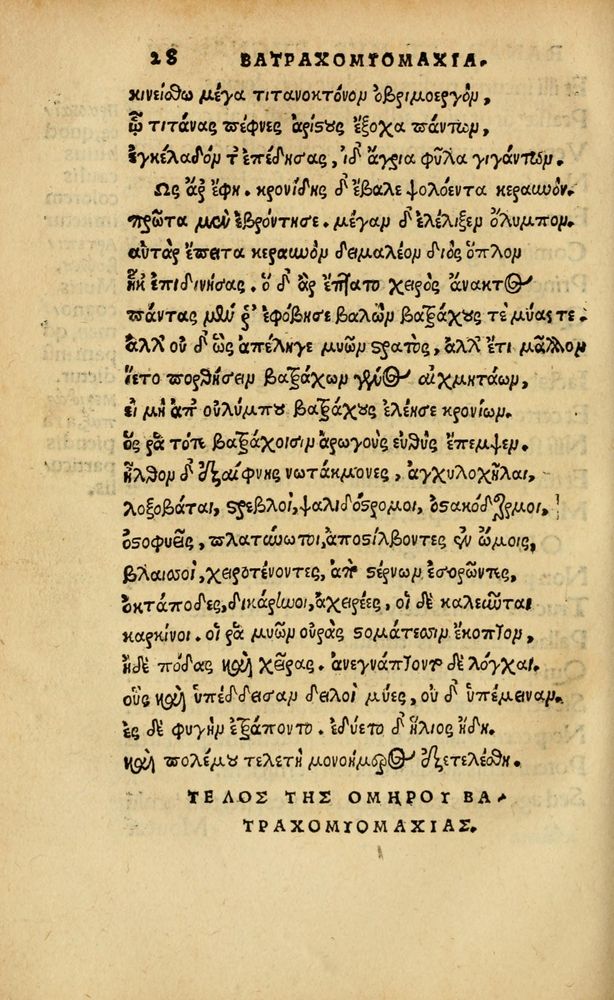 28 ΒΑΤΡΑΧΟΜΥΟΜΑΧΙΑ.
κινείσθω μέγα τιτανοκτόνον ὀβριμοεργὸν,
ᾧ τιτᾶνας πέφνες ἀρίστους ἔξοχα πάντων,
ἐγκέλαδόν τ' ἐπέδησας, ἰδ' ἄγρια φῦλα γιγάντων.
Ὣς ἄρ' ἔφη. κρονίδης δ' ἔβαλε ψολόεντα κεραυνόν.
πρῶτα μὲν ἐβρόντησε. μέγαν δ' ἐλέλιξεν ὄλυμπον.
αὐτὰρ ἔπειτα κεραυνὸν δειμαλέον διὸς ὅπλον
ἧκ' ἐπιδινήσας. ὁ δ' ἄρ' ἔπτατο χειρὸς ἄνακτος
πάντας μὲν ῥ' ἐφόβησε βαλὼν βατράχους τε μύας τε.
ἀλλ' οὐ δ' ὣς ἀπέληγε μυῶν στρατὸς, ἀλλ' ἔτι μᾶλλον
ἵετο πορθήσειν βατράχων γένος αἰχμητάων,
εἰ μὴ ἀπ' οὐλύμπου βατράχους ἐλέησε κρονίων.
ὅς ῥα τότε βατράχοισιν ἀρωγοὺς εὐθὺς ἔπεμψεν.
ἦλθον δ' ἐξαίφνης νωτάκμονες, ἀγκυλοχῆλαι,
λοξοβάται, στρεβλοὶ, ψαλιδόστομοι, ὀστακόδερμοι,
ὀστοφυεῖς, πλατύνωτοι, ἀποστίλβοντες ἐν ὤμοις,
βλαισοὶ, χειροτένοντες, ἀπὸ στέρνων ἐσορῶντες,
ὀκτάποδες, δικάρηνοι, ἀχειρέες, οἱ δὲ καλεῦνται
καρκίνοι. οἵ ῥα μυῶν οὐρὰς στομάτεσσιν ἔκοπτον,
ἠδὲ πόδας καὶ χεῖρας. ἀνεγνάπτοντο δὲ λόγχαι.
οὓς καὶ ὑπέδδεισαν δειλοὶ μύες, οὐ δ' ὑπέμειναν.
ἐς δὲ φυγὴν ἐτράποντο. ἐδύετο δ' ἥλιος ἤδη.
καὶ πολέμου τελετὴ μονοήμερος ἐξετελέσθη.
ΤΕΛΟΣ ΤΗΣ ΟΜΗΡΟΥ ΒΑ-
ΤΡΑΧΟΜΥΟΜΑΧΙΑΣ.